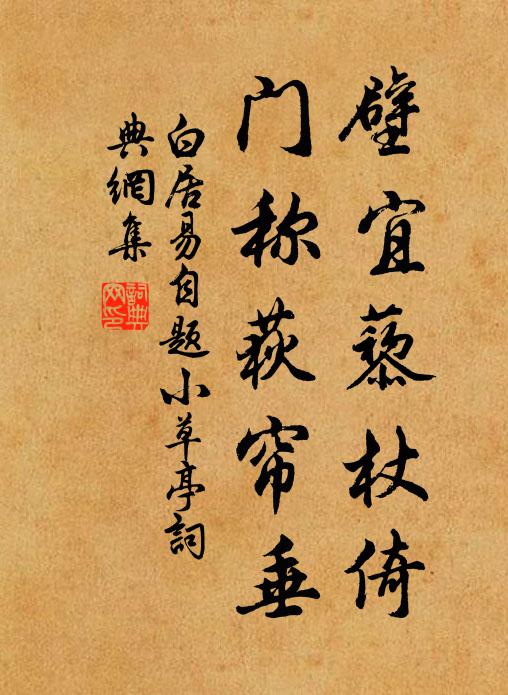 壁宜藜杖倚
门称荻帘垂
白居易自题小草亭词
典網集
詞典
网印